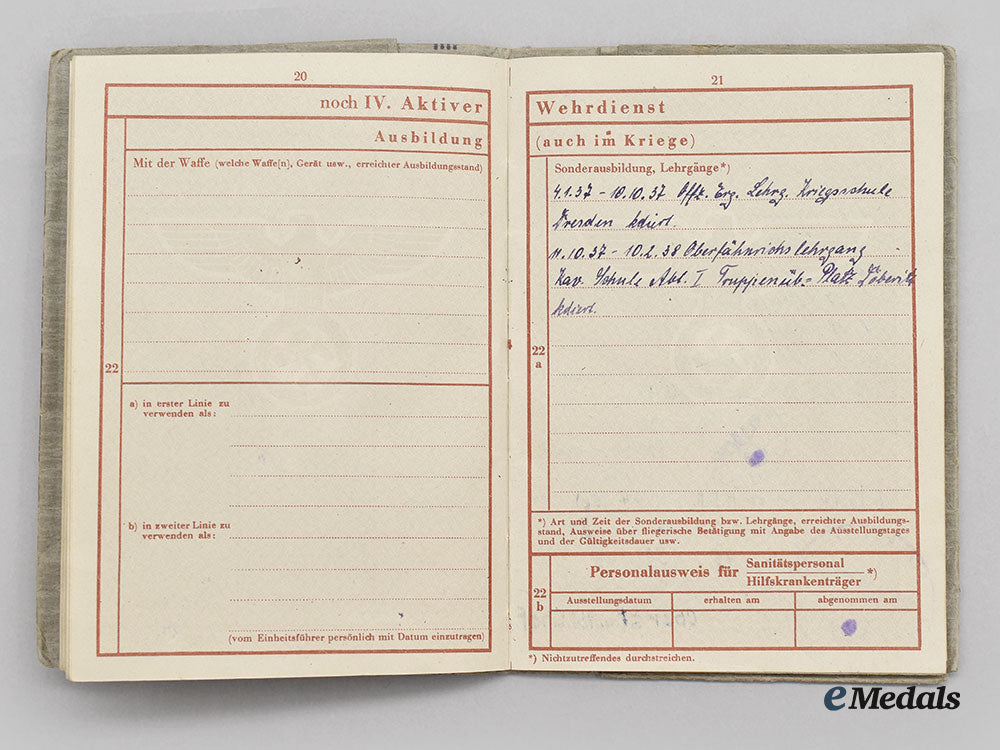 20
noch IV. Aktiver
Ausbildung
Mit der Waffe (welche Waffe[n], Gerät usw., erreichter Ausbildungsstand)
22
a) in erster Linie zu
verwenden als:
b) in zweiter Linie zu
verwenden als:
(vom Einheitsführer persönlich mit Datum einzutragen)
21
Wehrdienst
(auch im Kriege)
Sonderausbildung, Lehrgänge*)
4.1.37 - 10.10.37 Offz. Erg. Lehrg. Kriegsschule
Dresden kdiert.
11.10.37 - 10.2.38 Oberfähnrichslehrgang
Kav. Schule Abt. I Truppenüb.- Platz Döberitz
kdiert.
22
a
*) Art und Zeit der Sonderausbildung bzw. Lehrgänge, erreichter Ausbildungs-
stand, Ausweise über fliegerische Betätigung mit Angabe des Ausstellungstages
und der Gültigkeitsdauer usw.
22
b
Personalausweis für Sanitätspersonal
Hilfskrankenträger *)
Ausstellungsdatum erhalten am abgenommen am
*) Nichtzutreffendes durchstreichen.
eMedals